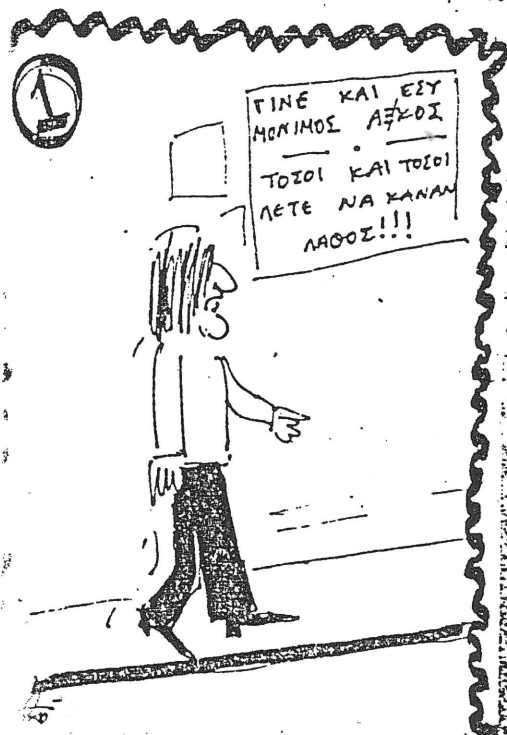 1
ΓΙΝΕ ΚΑΙ ΕΣΥ
ΜΟΝΙΜΟΣ ΑΞΚΟΣ
ΤΟΣΟΙ ΚΑΙ ΤΟΣΟΙ
ΛΕΤΕ ΝΑ ΚΑΝΑΝ
ΛΑΘΟΣ!!!